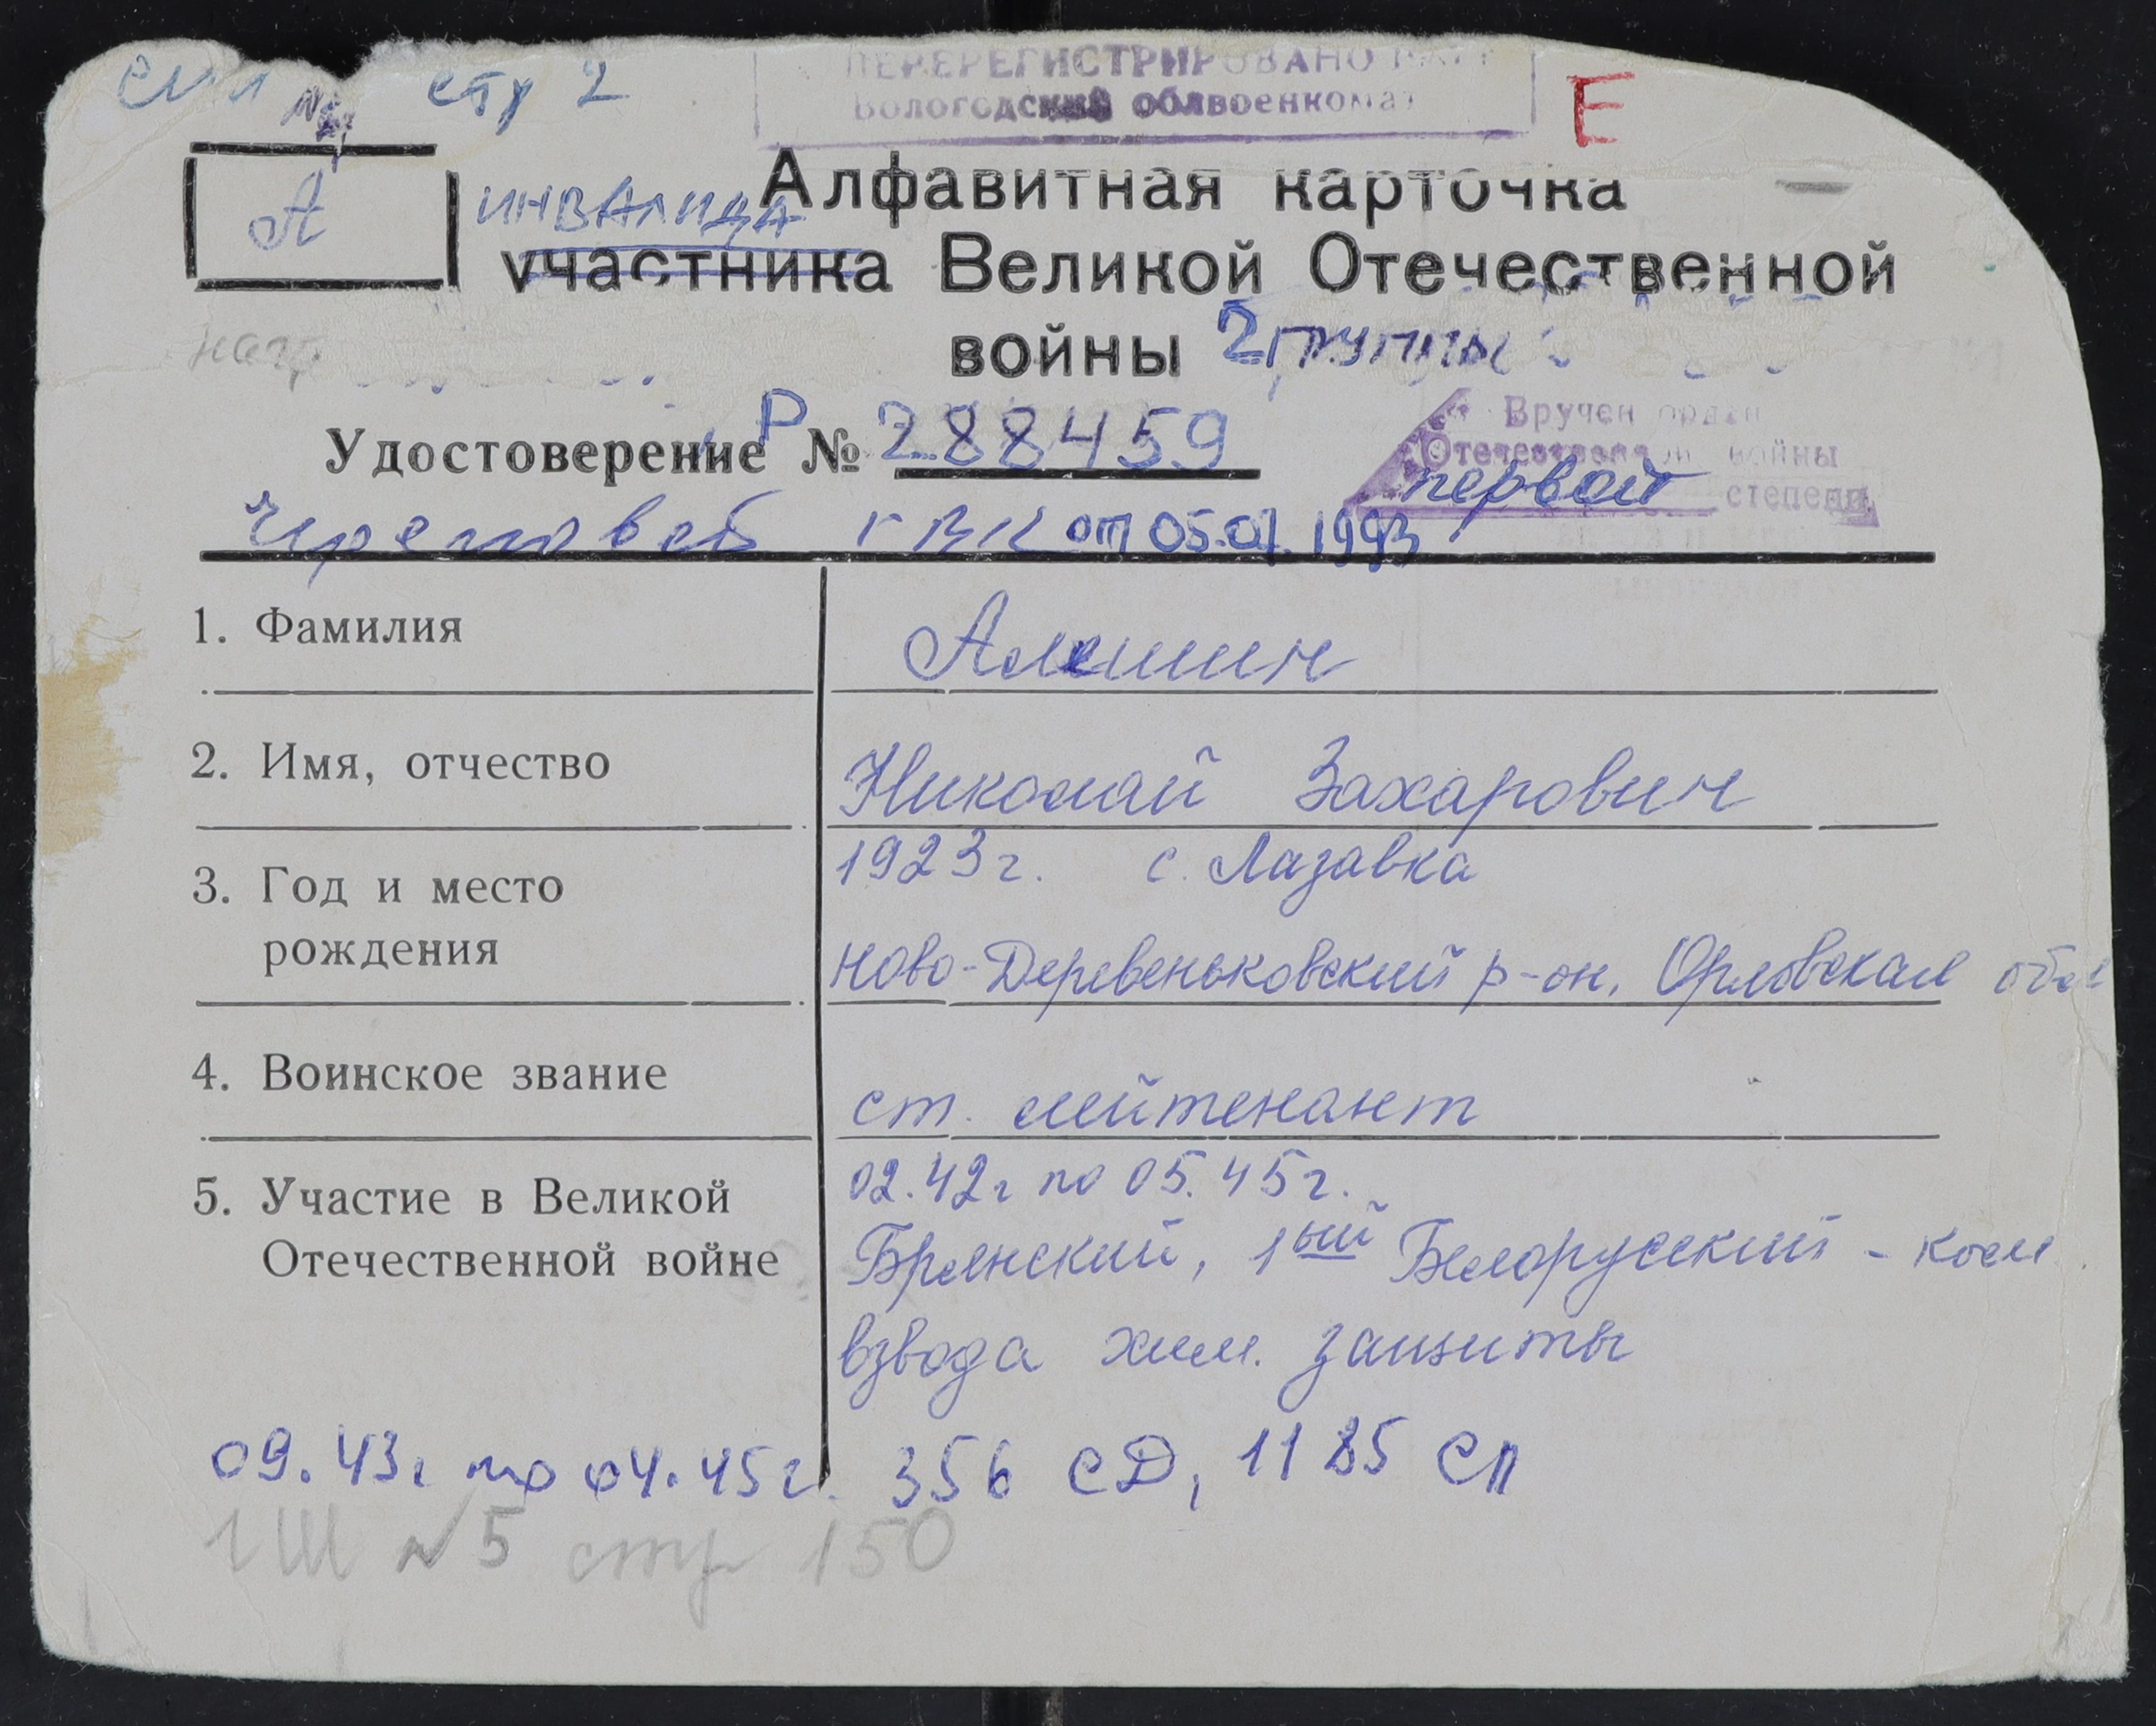 стр 2
ПЕРЕРЕГИСТРИРОВАНО
Вологодский облвоенкомат
Е
А
инвалида
Алфавитная карточка
участника Великой Отечественной
войны 2 группы
Удостоверение Р № 288459
Вручен орден
Отечественной войны
первой степени
Череповец ГВК от 05.01.1993
1. Фамилия Алешин
2. Имя, отчество Николай Захарович
3. Год и место рождения 1923г. с. Лазавка
Ново-Деревеньковский р-он, Орловская обл
4. Воинское звание ст. лейтенант
5. Участие в Великой Отечественной войне 02.42г по 05.45г.
Брянский, 1ый Белорусский - ком
взвода хим. защиты
09.43г по 04.45г. 356 СД, 1185 СП
№5 стр 150